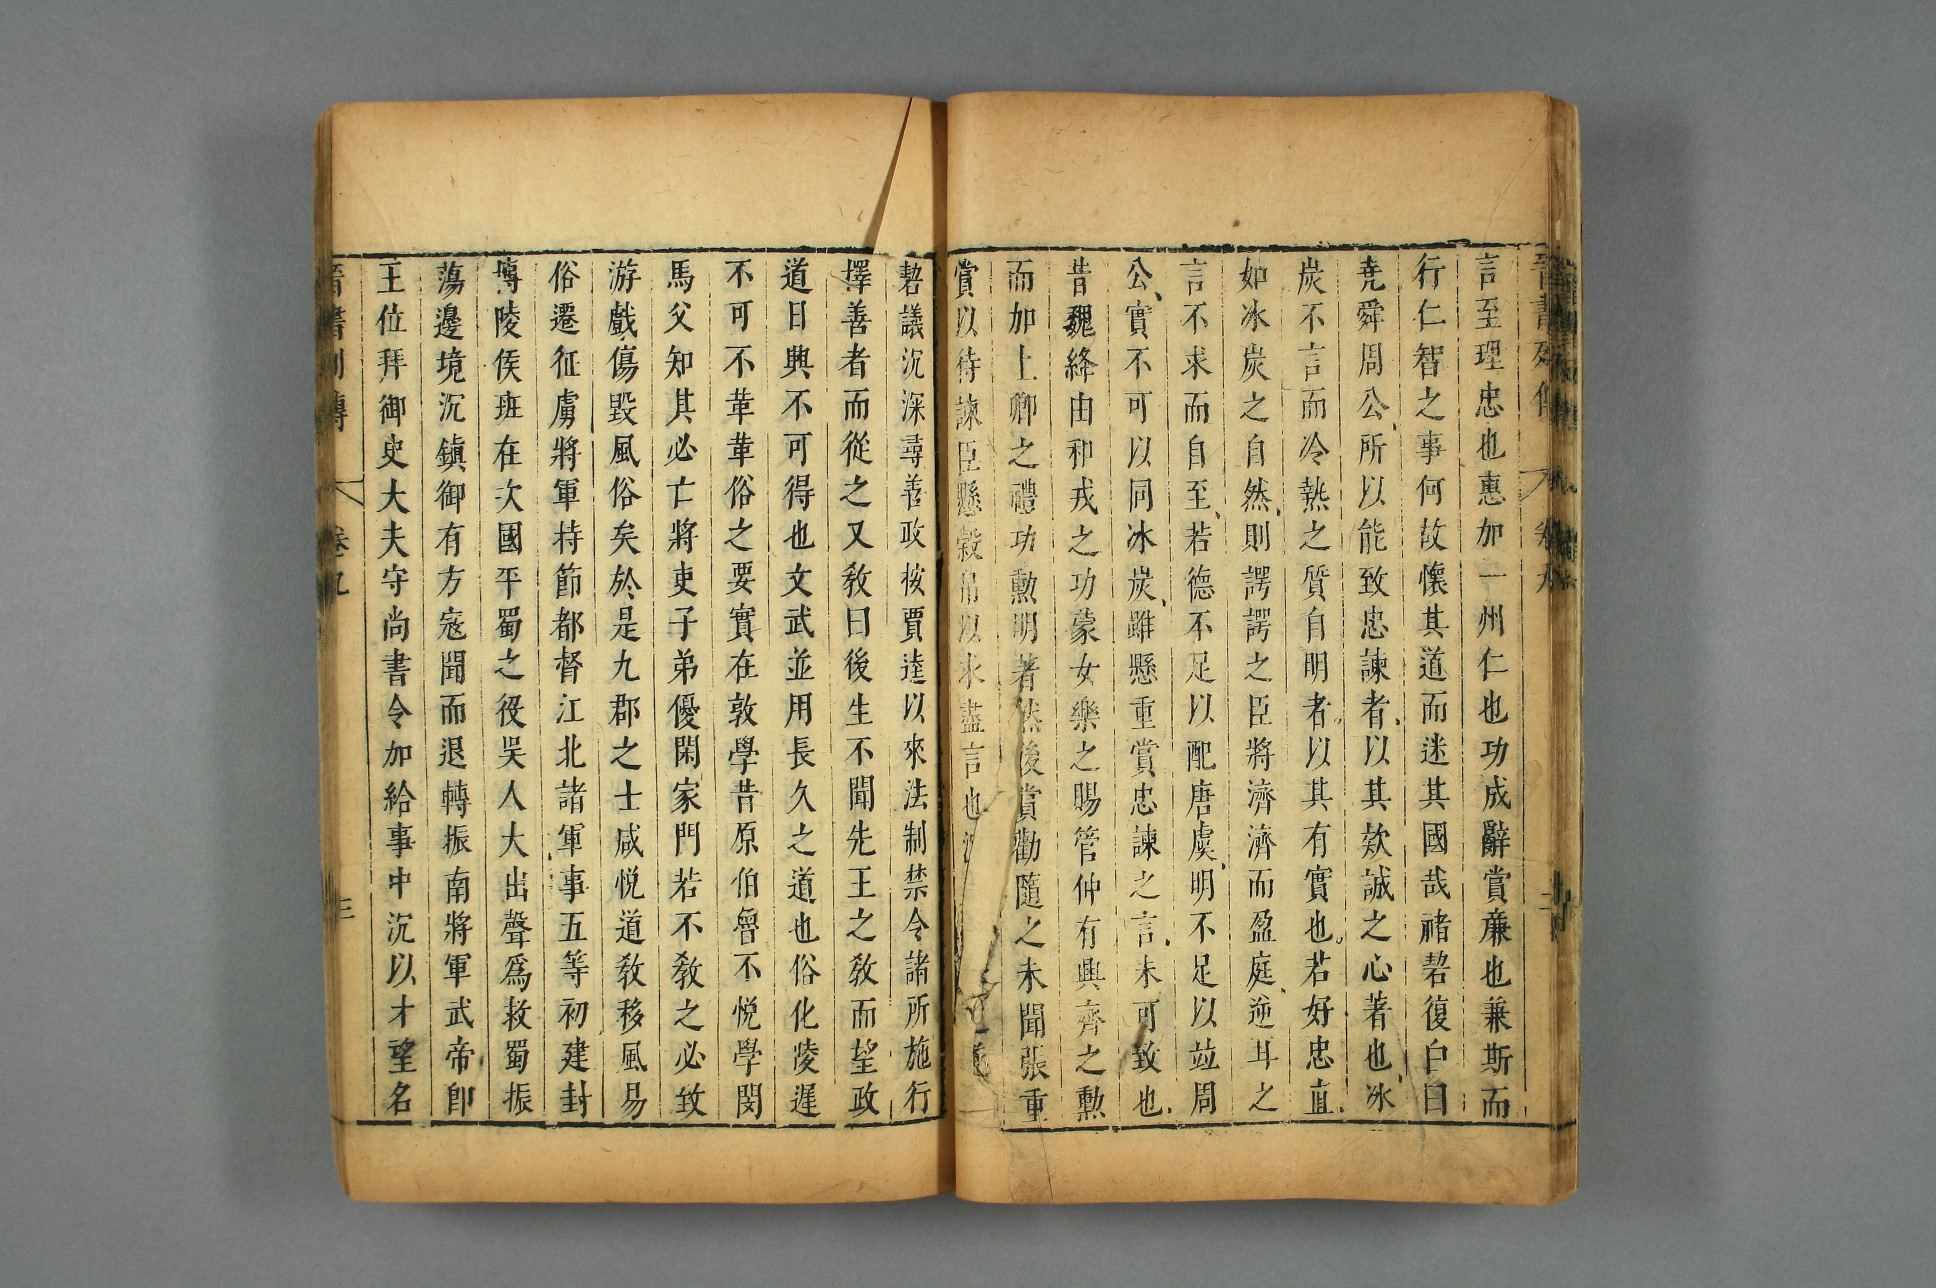 晉書列傳 卷九
言至理忠也惠加一州仁也功成辭賞廉也兼斯而
行仁智之事何故懷其道而迷其國哉褚䂮復白曰
堯舜周公、所以能致忠諫者、以其欵誠之心著也、冰
炭不言而冷熱之質自明者、以其有實也。若好忠直、
如冰炭之自然、則諤諤之臣將濟濟而盈庭、逆耳之
言不求而自至、若德不足以配唐虞、明不足以竝周
公、實不可以同冰炭、雖懸重賞忠諫之言、未可致也、
昔魏絳由和戎之功蒙女樂之賜管仲有興齊之勲
而加上卿之禮功勲明著然後賞勸隨之未聞張重
賞以待諫臣懸穀帛以求盡言也
䂮議沉深尋善政按賈逵以來法制禁令諸所施行
擇善者而從之又敎曰後生不聞先王之敎而望政
道日興不可得也文武並用長久之道也俗化陵遲
不可不革革俗之要實在敦學昔原伯魯不悅學閔
馬父知其必亡將吏子弟優閑家門若不敎之必致
游戲傷毀風俗矣於是九郡之士咸悅道敎移風易
俗遷征虜將軍持節都督江北諸軍事五等初建封
博陵侯班在次國平蜀之役吳人大出聲爲救蜀振
蕩邊境沉鎭御有方寇聞而退轉振南將軍武帝卽
王位拜御史大夫守尚書令加給事中沉以才望名
晉書列傳 卷九 三